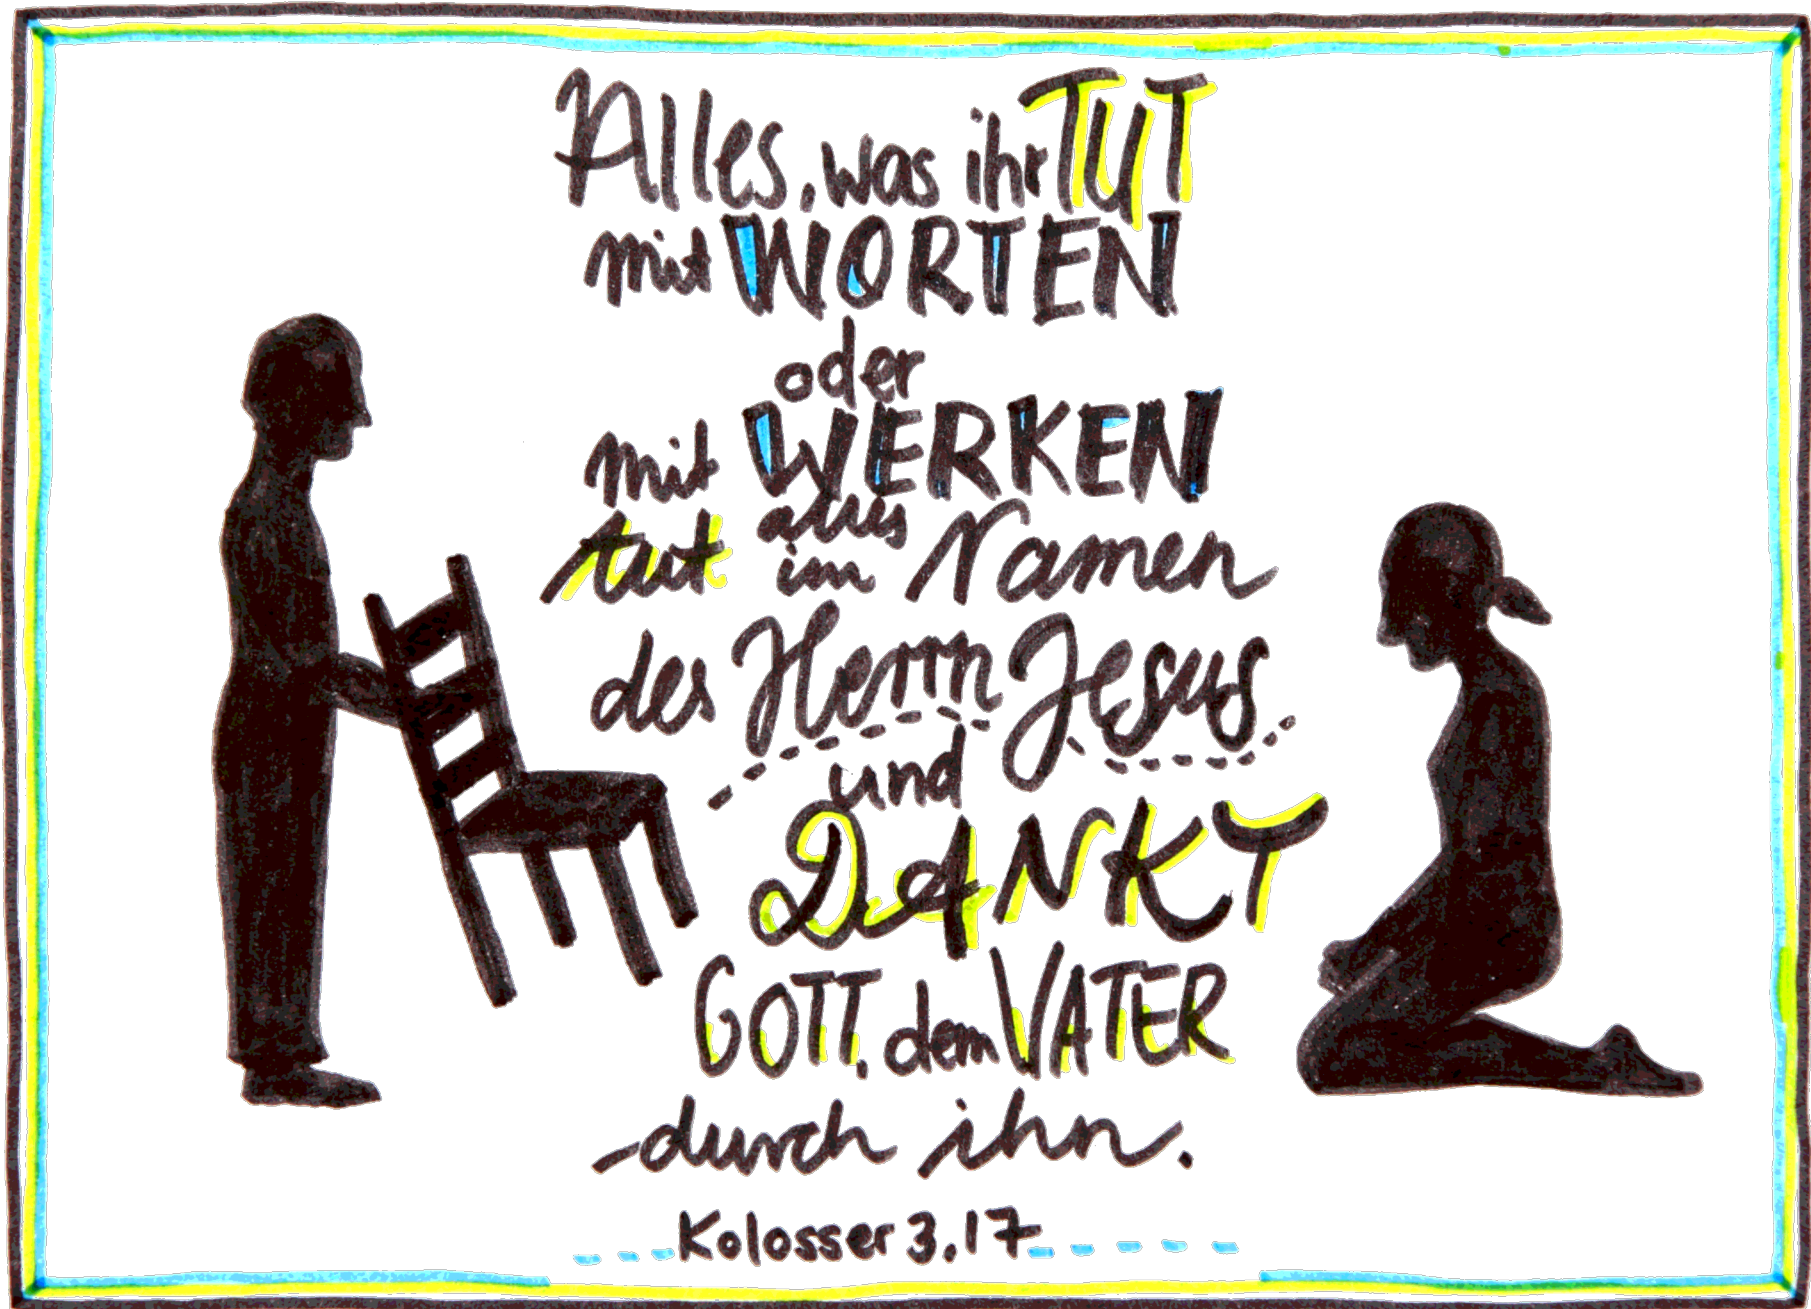 Alles, was ihr TUT
mit WORTEN
oder
mit WERKEN
tut alles im Namen
des Herrn Jesus
und
DANKT
GOTT, dem VATER
durch ihn.
Kolosser 3,17